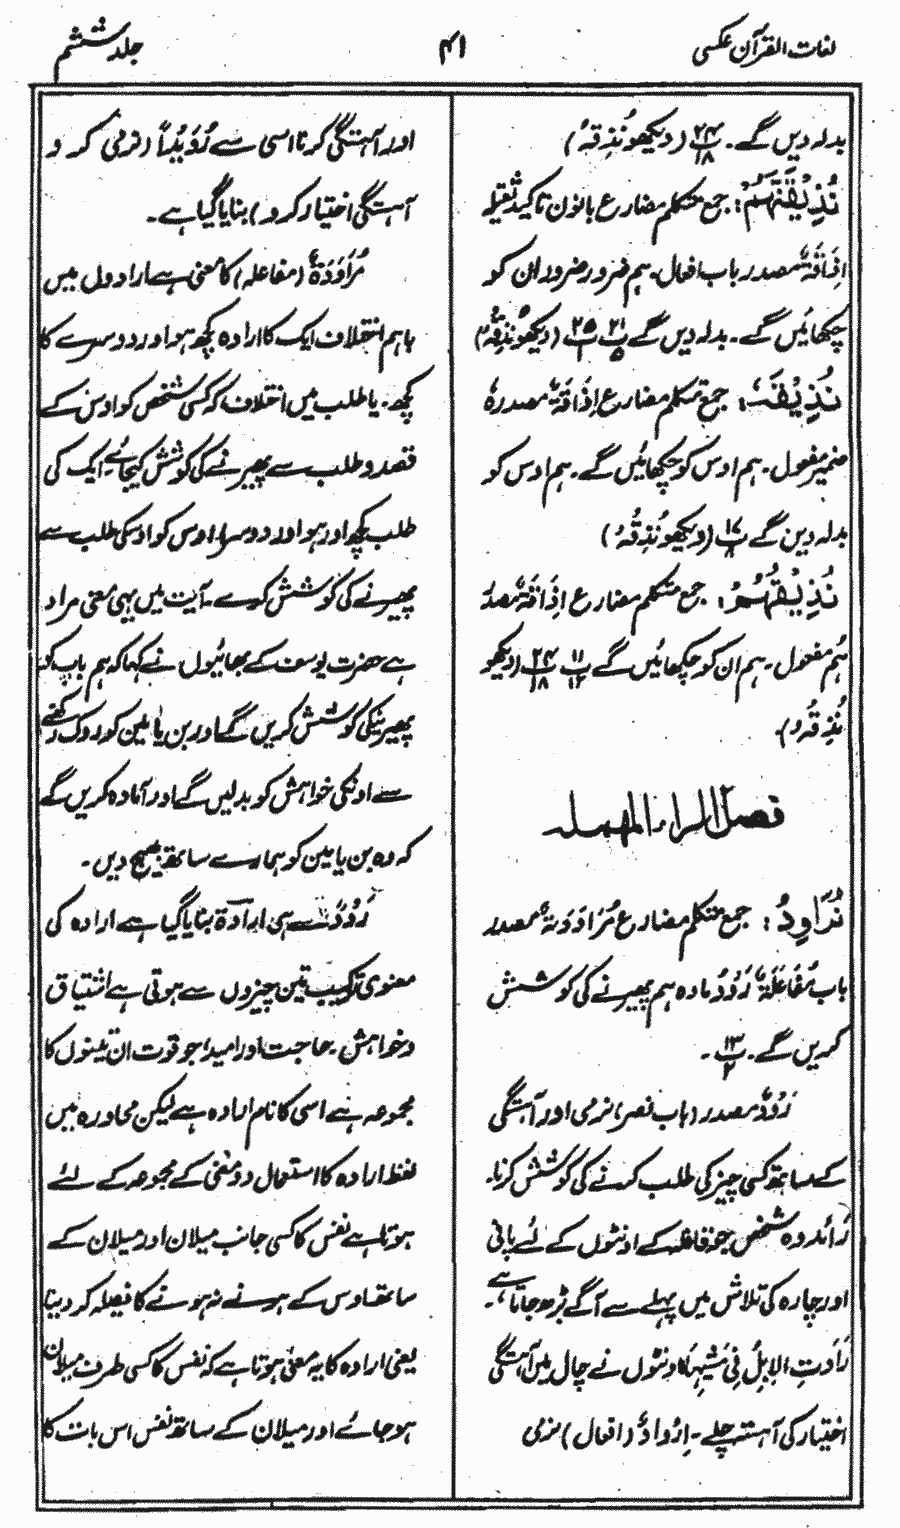 لغات القرآن عکسی
۴۱
جلد ششم
بدلہ دیں گے۔ ۲۴/۱۸ (دیکھو نُذِقْہُ)
نُذِیْقَنَّہُمْ: جمع متکلم مضارع بانون تاکید ثقیلہ
اِذَاقَۃٌ مصدر باب افعال۔ ہم ضرور ضرور ان کو
چکھائیں گے۔ بدلہ دیں گے ۲۱/۵ ۲۵/۱ (دیکھو نُذِقْہُ)
نُذِیْقُہٗ: جمع متکلم مضارع اِذَاقَۃٌ مصدر ہٗ
ضمیر مفعول۔ ہم اوس کو چکھائیں گے۔ ہم اوس کو
بدلہ دیں گے ۱۷/۸ (دیکھو نُذِقْہُ)
نُذِیْقُہُمْ: جمع متکلم مضارع اِذَاقَۃٌ مصدر
ہُم مفعول۔ ہم ان کو چکھائیں گے ۱۱/۱۲ ۲۴/۱۸ (دیکھو
نُذِقْہُ)۔
فصل الراء المہملہ
نُرَاوِدُ: جمع متکلم مضارع مُرَاوَدَۃٌ مصدر
باب مُفَاعَلَۃٌ رَوْدٌ مادہ ہم پھیرنے کی کوشش
کریں گے۔ ۱۳/۲۔
رَوْدٌ مصدر (باب نصر) نرمی اور آہستگی
کے ساتھ کسی چیز کی طلب کرنے کی کوشش کرنا۔
رَائد وہ شخص جو قافلہ کے اونٹوں کے لئے پانی
اور چارہ کی تلاش میں پہلے سے آگے بڑھ جاتا ہے۔
رَادَتِ الاِبِلُ فِی مَشْیِہَا اونٹوں نے چال میں آہستگی
اختیار کی آہستہ چلے۔ اِرْوَادٌ (افعال) نرمی
اور آہستگی کرنا اسی سے رُوَیْدًا (نرمی کر و
آہستگی اختیار کرو) بنایا گیا ہے۔
مُرَاوَدَۃٌ (مفاعلہ) کا معنی ہے ارادوں میں
باہم اختلاف ایک کا ارادہ کچھ ہو اور دوسرے کا
کچھ۔ یا طلب میں اختلاف کہ کسی شخص کو اوس کے
قصد و طلب سے پھیرنے کی کوشش کیجائے۔ ایک کی
طلب کچھ اور ہو اور دوسرا اوس کو اوسکی طلب سے
پھیرنے کی کوشش کرے۔ آیت میں یہی معنی مراد
ہے حضرت یوسف کے بھائیوں نے کہا کہ ہم باپ کو
پھیرنیکی کوشش کریں گے اور بن یامین کو روک رکھنے
سے اونکی خواہش کو بدلیں گے اور آمادہ کریں گے
کہ وہ بن یامین کو ہمارے ساتھ بھیج دیں۔
رَوْدٌ سے ہی اِرَادَۃ بنایا گیا ہے ارادہ کی
معنوی ترکیب تین چیزوں سے ہوتی ہے اشتیاق
و خواہش۔ حاجت اور امید جو قوت ان تینوں کا
مجموعہ ہے اسی کا نام ارادہ ہے لیکن محاورہ میں
لفظ ارادہ کا استعمال دو معنٰی کے مجموعہ کے لئے
ہوتا ہے نفس کا کسی جانب میلان اور میلان کے
ساتھ اوس کے ہونے نہ ہونے کا فیصلہ کر دینا
یعنی ارادہ کا یہ معنٰی ہوتا ہے کہ نفس کا کسی طرف میلان
ہو جائے اور میلان کے ساتھ نفس اس بات کا